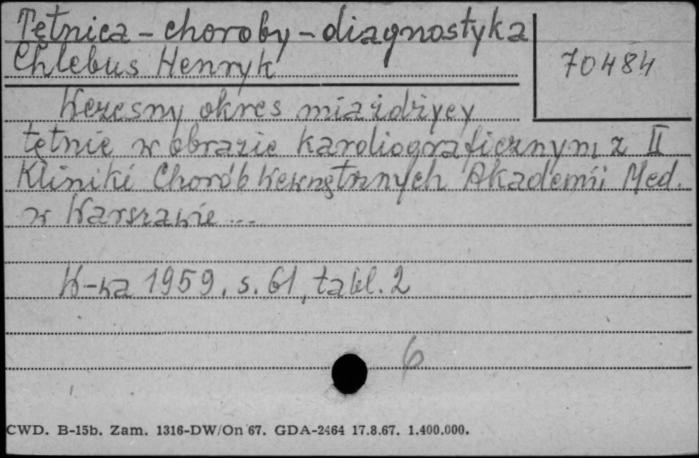 Tętnica - choroby - diagnostyka
Chlebus Henryk
70484
Wczesny okres miażdżycy
tętnic w obrazie kardiograficznym z II
Kliniki Chorób Wewnętrznych Akademii Med.
w Warszawie ...
W-wa 1959, s. 61, tabl. 2
6
CWD. B-15b. Zam. 1316-DW/On 67. GDA-2464 17.8.67. 1.400.000.